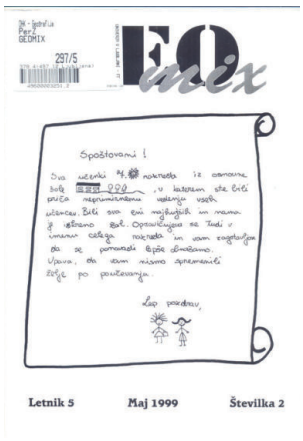 OHK - Geografija
PerZ
GEOMIX
297/5
EO
mix
Spoštovani!
Sva učenki 7. razreda iz osnovne
šole, v katerem ste bili
priča neprimernemu vedenju vseh
učencev. Bili sva med najhujšimi in nama
je iskreno žal. Opravičujeva se tudi v
imenu celega razreda in vam zagotavljam
da se ponavadi lepše obnašamo.
Upava, da vam nismo spremenili
želje po poučevanju.
Lep pozdrav,
Letnik 5 Maj 1999 Številka 2